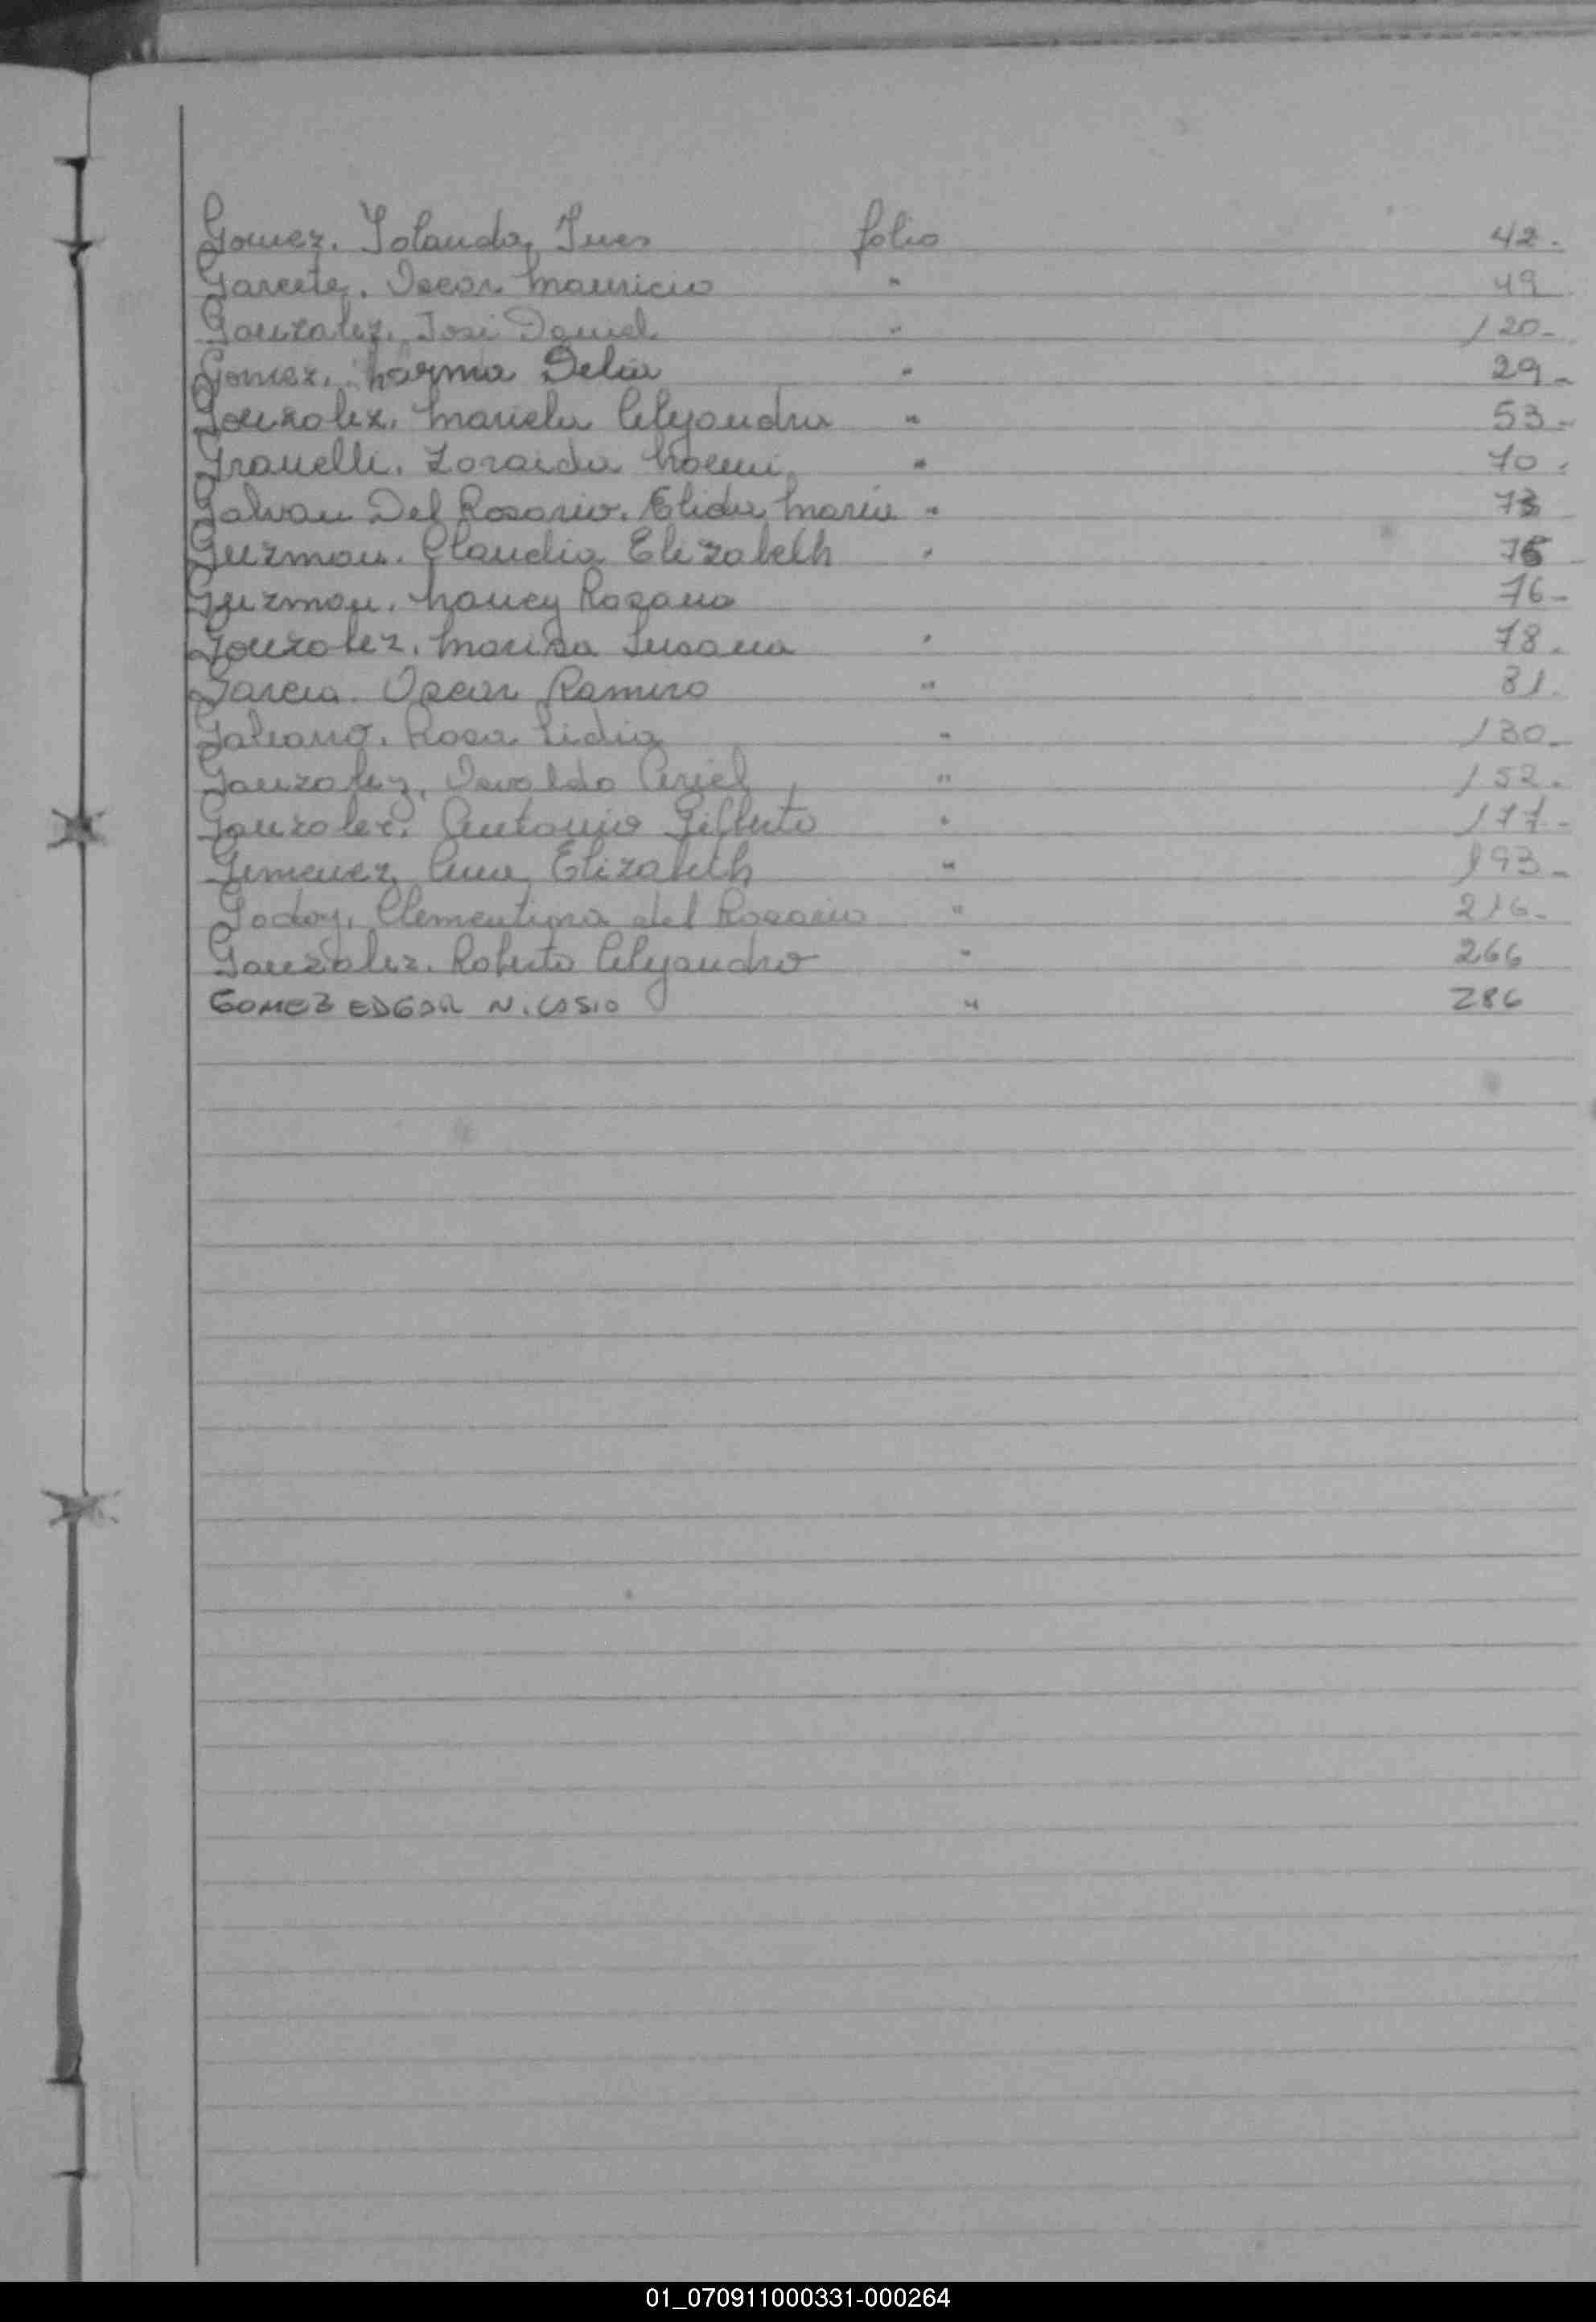 Gomez. Yolanda Ines folio 42.
Garcete. Oscar Mauricio " 49
Gonzalez. José Daniel " 120-
Gomez. Norma Delia " 29-
Gonzalez. Mariela Alejandra " 53-
Granelli. Zoraida Noemi " 70.
Galvan Del Rosario. Elida Maria " 73
Guzman. Claudia Elizabeth " 75
Guzman. Nancy Rosana 76-
Gonzalez. Marisa Susana " 78.
Garcia. Oscar Ramiro " 81.
Galeano. Rosa Lidia " 130-
Gonzalez, Osvaldo Ariel " 152.
Gonzalez. Antonio Gilberto " 177-
Gimenez, Ana Elizabeth " 193-
Godoy, Clementina del Rosario " 216-
Gonzalez. Roberto Alejandro " 266
GOMEZ EDGAR NICASIO " 286
01_070911000331-000264